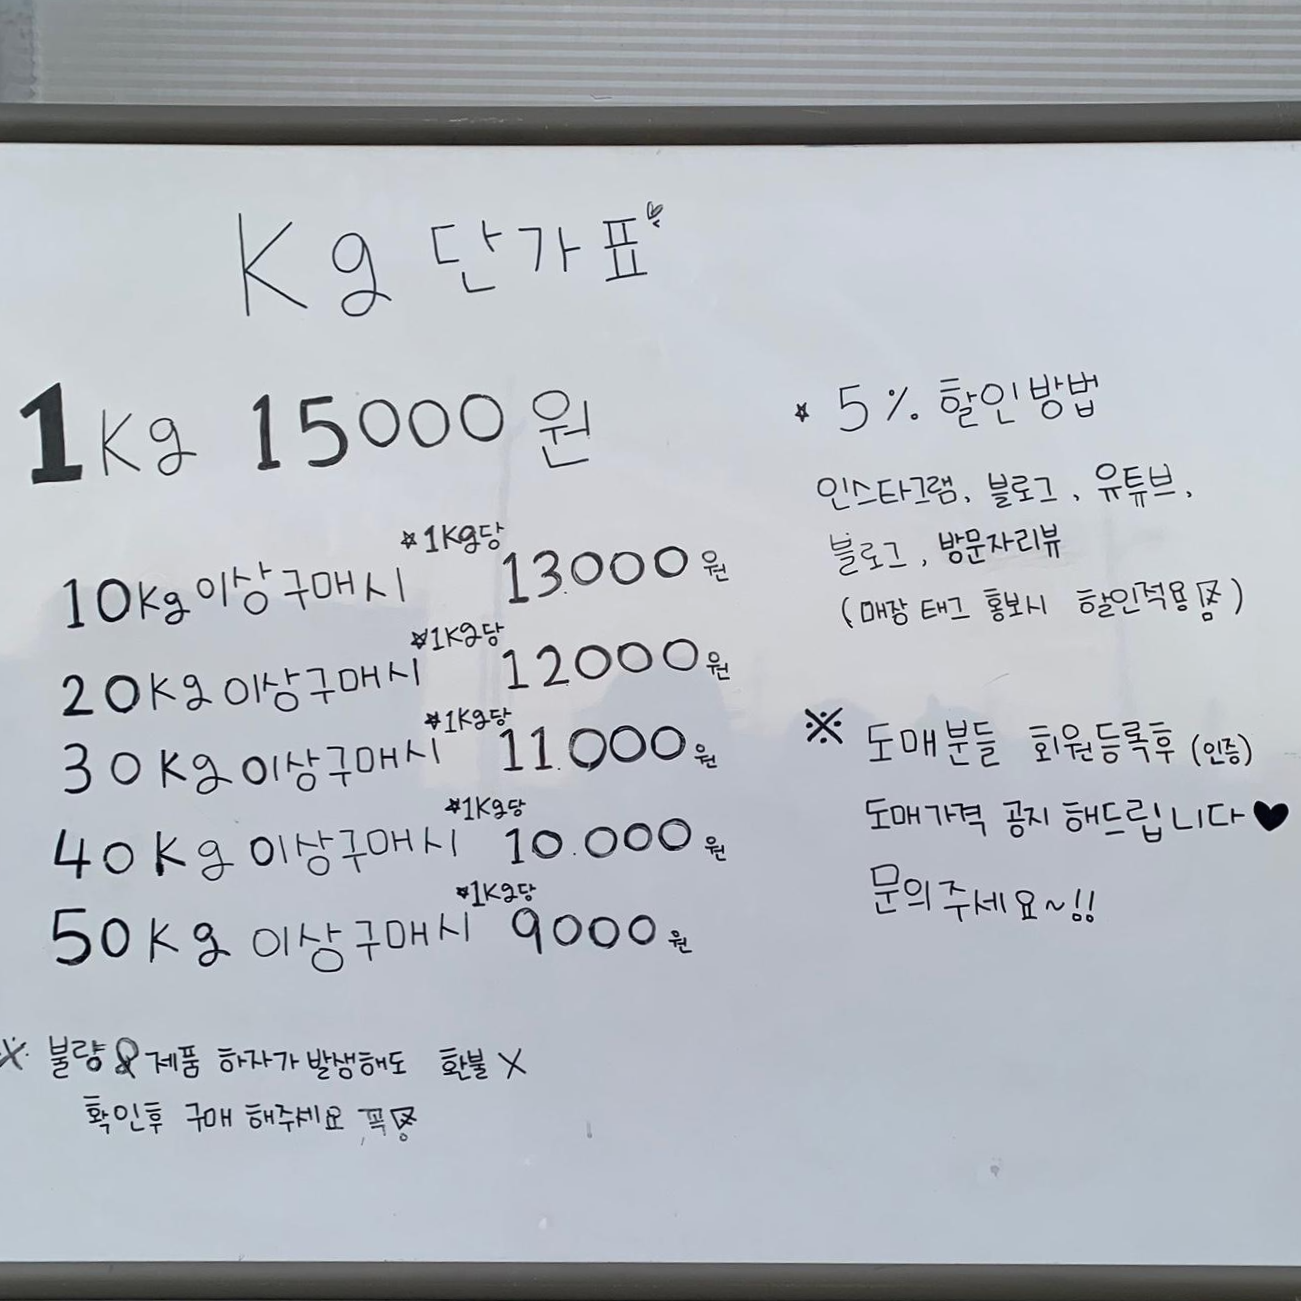 Kg 단가표
1Kg 15000원
10Kg이상구매시 *1Kg당 13.000원
20Kg이상구매시 *1Kg당 12000원
30Kg이상구매시 *1Kg당 11.000원
40Kg이상구매시 *1Kg당 10.000원
50Kg 이상구매시 *1Kg당 9000원
※ 불량 & 제품 하자가 발생해도 환불 X
확인후 구매 해주세요 꼭
* 5% 할인방법
인스타그램, 블로그, 유튜브,
블로그, 방문자리뷰
(매장 태그 홍보시 할인적용)
※ 도매분들 회원등록후 (인증)
도매가격 공지 해드립니다♥
문의주세요~!!